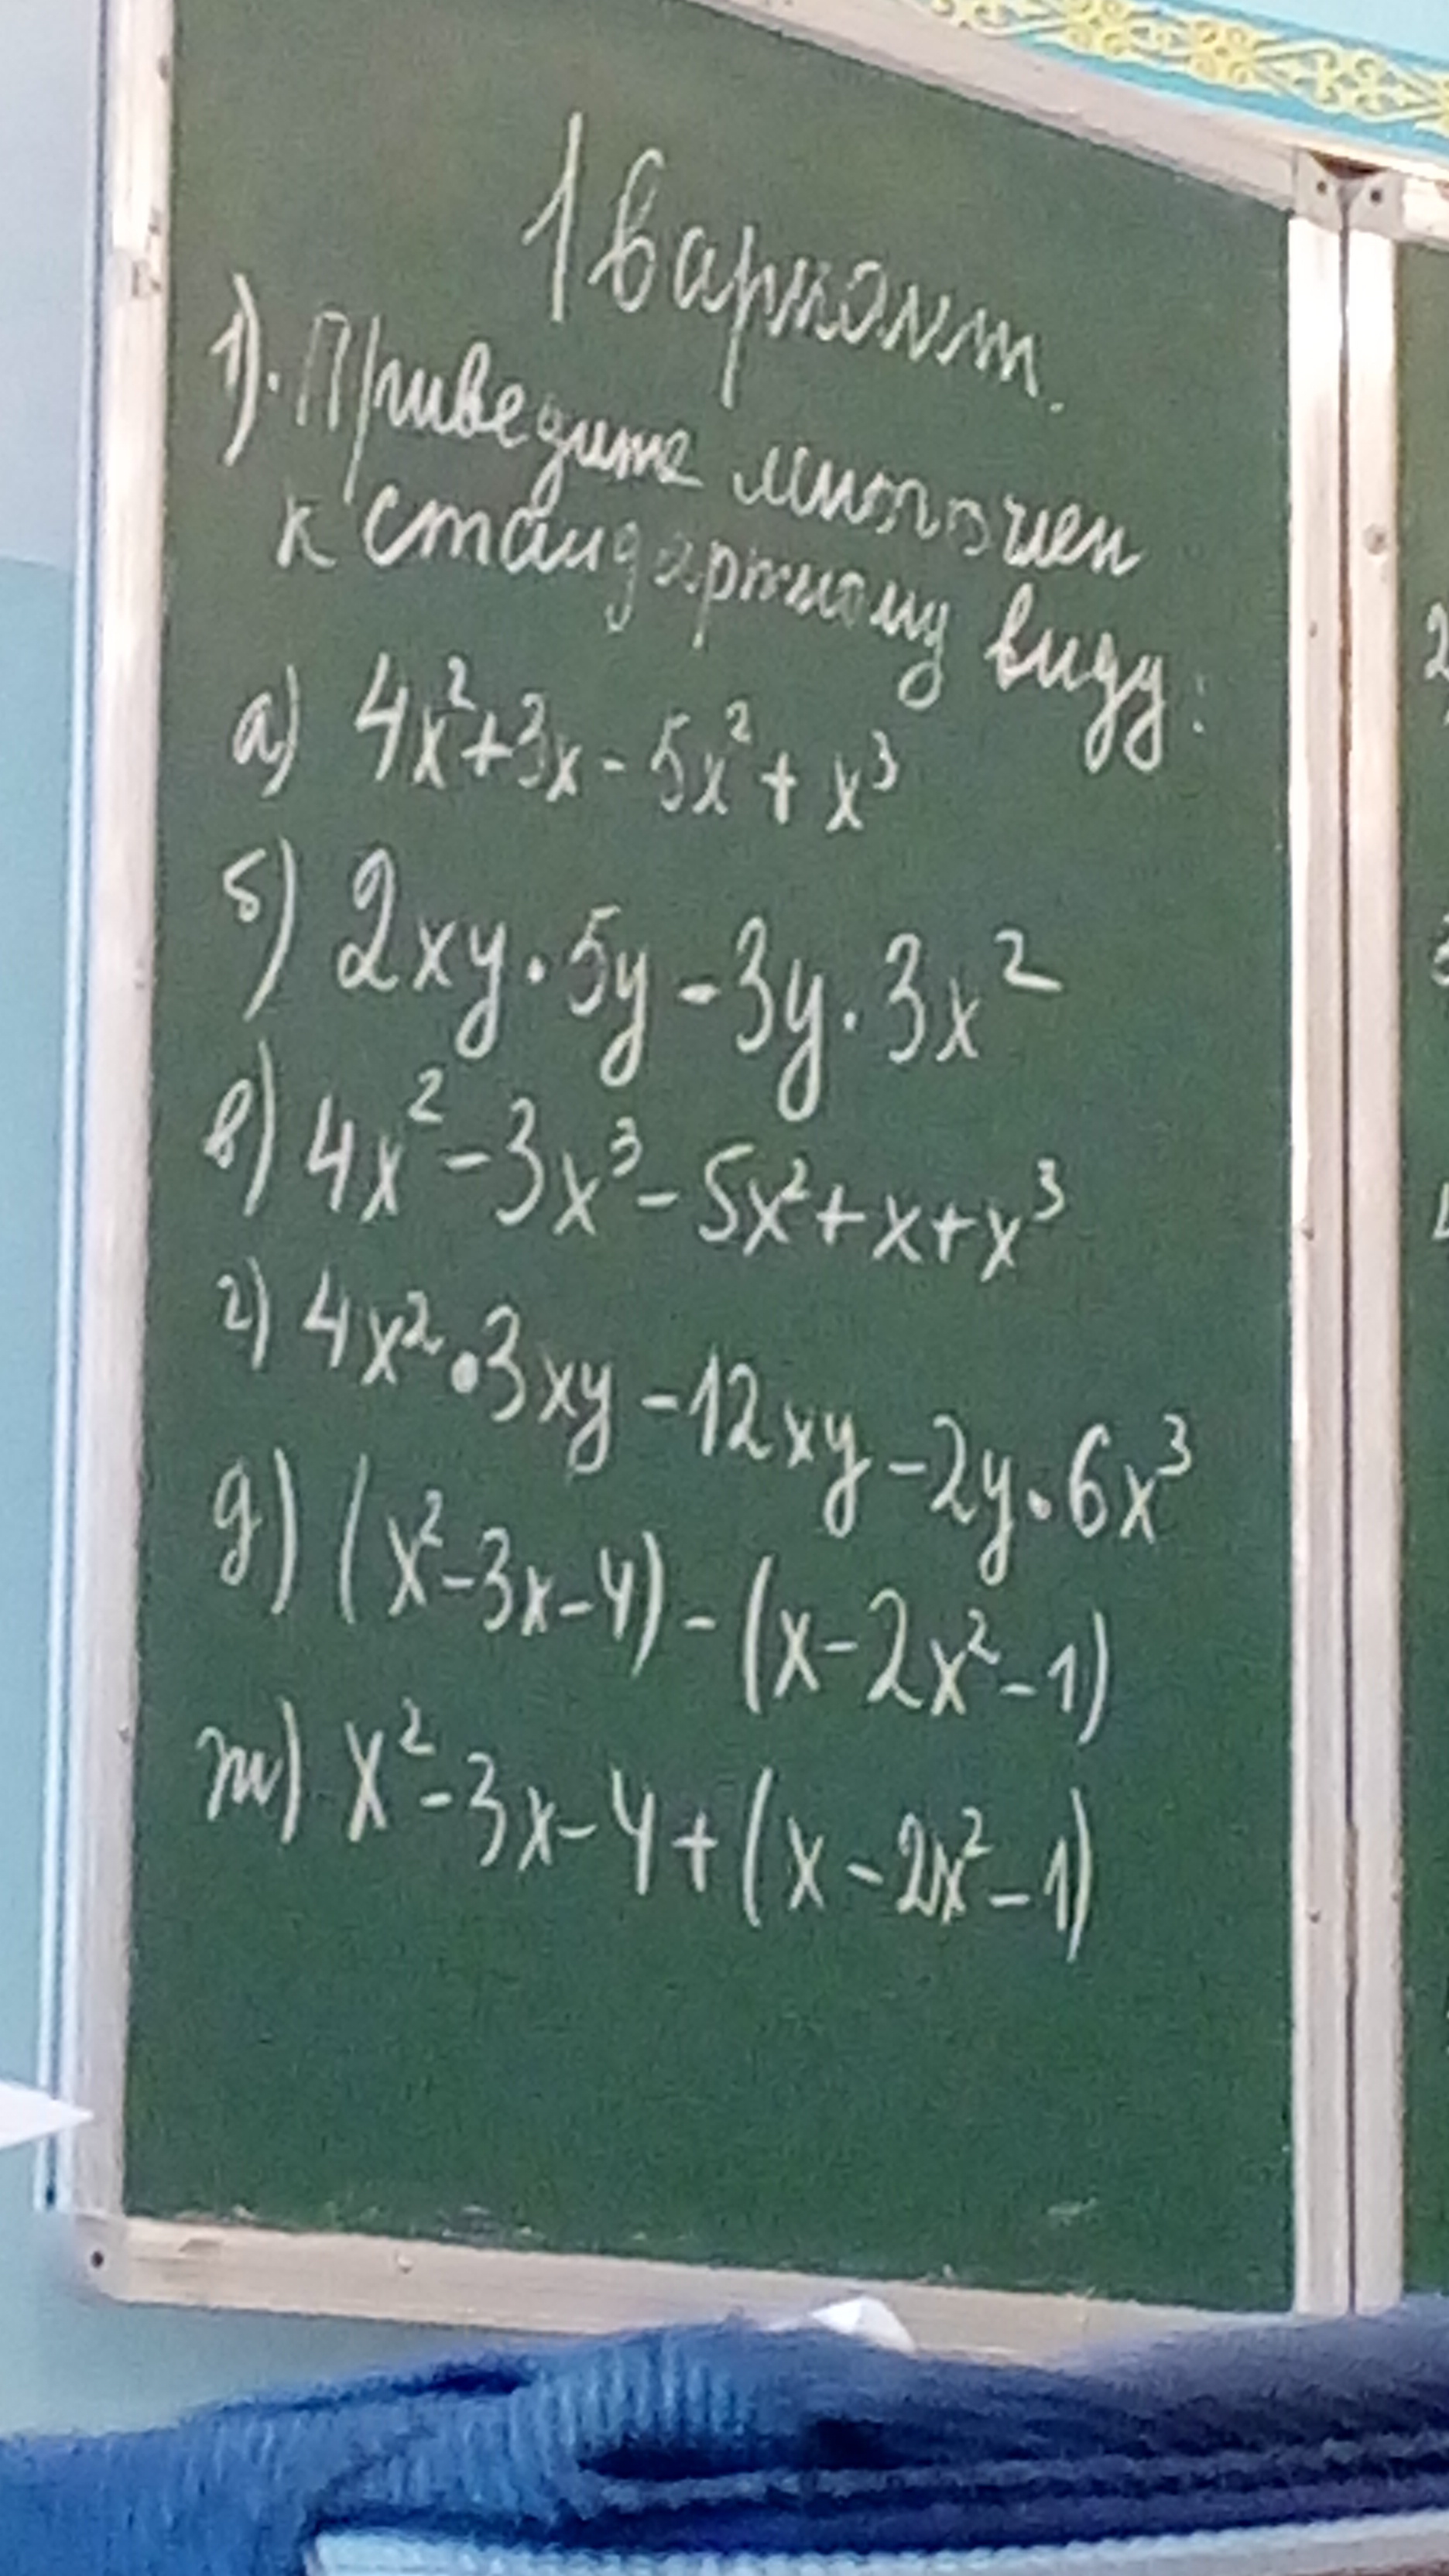 1 вариант.
1). Приведите многочлен
к стандартному виду:
а) 4x²+3x - 5x² + x³
б) 2xy · 5y - 3y · 3x²
в) 4x² - 3x³ - 5x² + x + x³
г) 4x² · 3xy - 12xy - 2y · 6x³
д) (x² - 3x - 4) - (x - 2x² - 1)
ж) x² - 3x - 4 + (x - 2x² - 1)